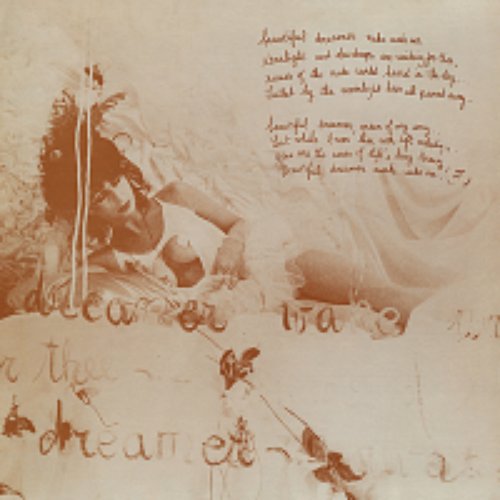 beautiful dreamer wake unto me
starlight and dewdrops are waiting for thee,
sounds of the rude world heard in the day,
Lulled by the moonlight have all passed away.
beautiful dreamer, queen of my song
List while I woo thee with soft melody,
Gone are the cares of life's busy throng
Beautiful dreamer awake unto me!
dreamer wake
r thee
dreamer